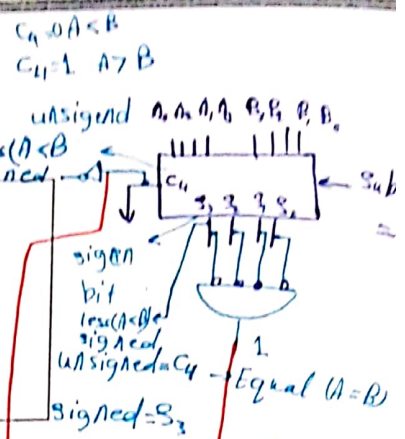 C4=0 A<B
C4=1 A>B
unsigend A3 A2 A1 A0 B3 B2 B1 B0
s(A<B
ned
C4
Sub
=
S3 S2 S1 S0
sigen
bit
less(A<B)
signed
1
unsigned=C4 → Equal (A=B)
signed=S3